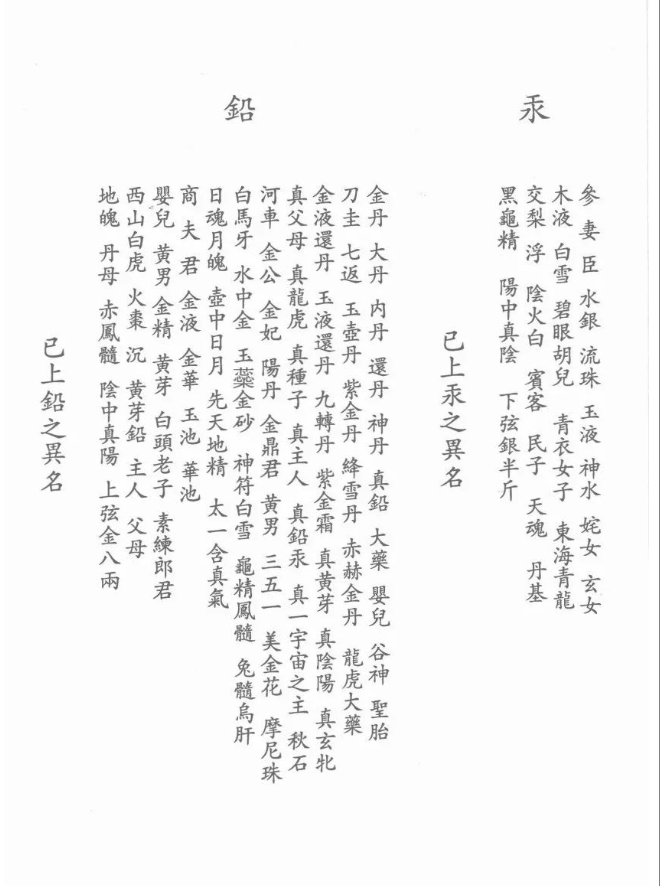 汞
參 妻 臣 水銀 流珠 玉液 神水 姹女 玄女
木液 白雪 碧眼胡兒 青衣女子 東海青龍
交梨 浮 陰火白 賓客 民子 天魂 丹基
黑龜精 陽中真陰 下弦銀半斤
已上汞之異名
鉛
金丹 大丹 內丹 還丹 神丹 真鉛 大藥 嬰兒 谷神 聖胎
刀圭 七返 玉壺丹 紫金丹 絳雪丹 赤赫金丹 龍虎大藥
金液還丹 玉液還丹 九轉丹 紫金霜 真黃芽 真陰陽 真玄牝
真父母 真龍虎 真種子 真主人 真鉛汞 真一宇宙之主 秋石
河車 金公 金妃 陽丹 金鼎君 黃男 三五一 美金花 摩尼珠
白馬牙 水中金 玉蘂金砂 神符白雪 龜精鳳髓 兔髓烏肝
日魂月魄 壺中日月 先天地精 太一含真氣
商 夫 君 金液 金華 玉池 華池
嬰兒 黃男 金精 黃芽 白頭老子 素練郎君
西山白虎 火棗 沉 黃芽鉛 主人 父母
地魄 丹母 赤鳳髓 陰中真陽 上弦金八兩
已上鉛之異名